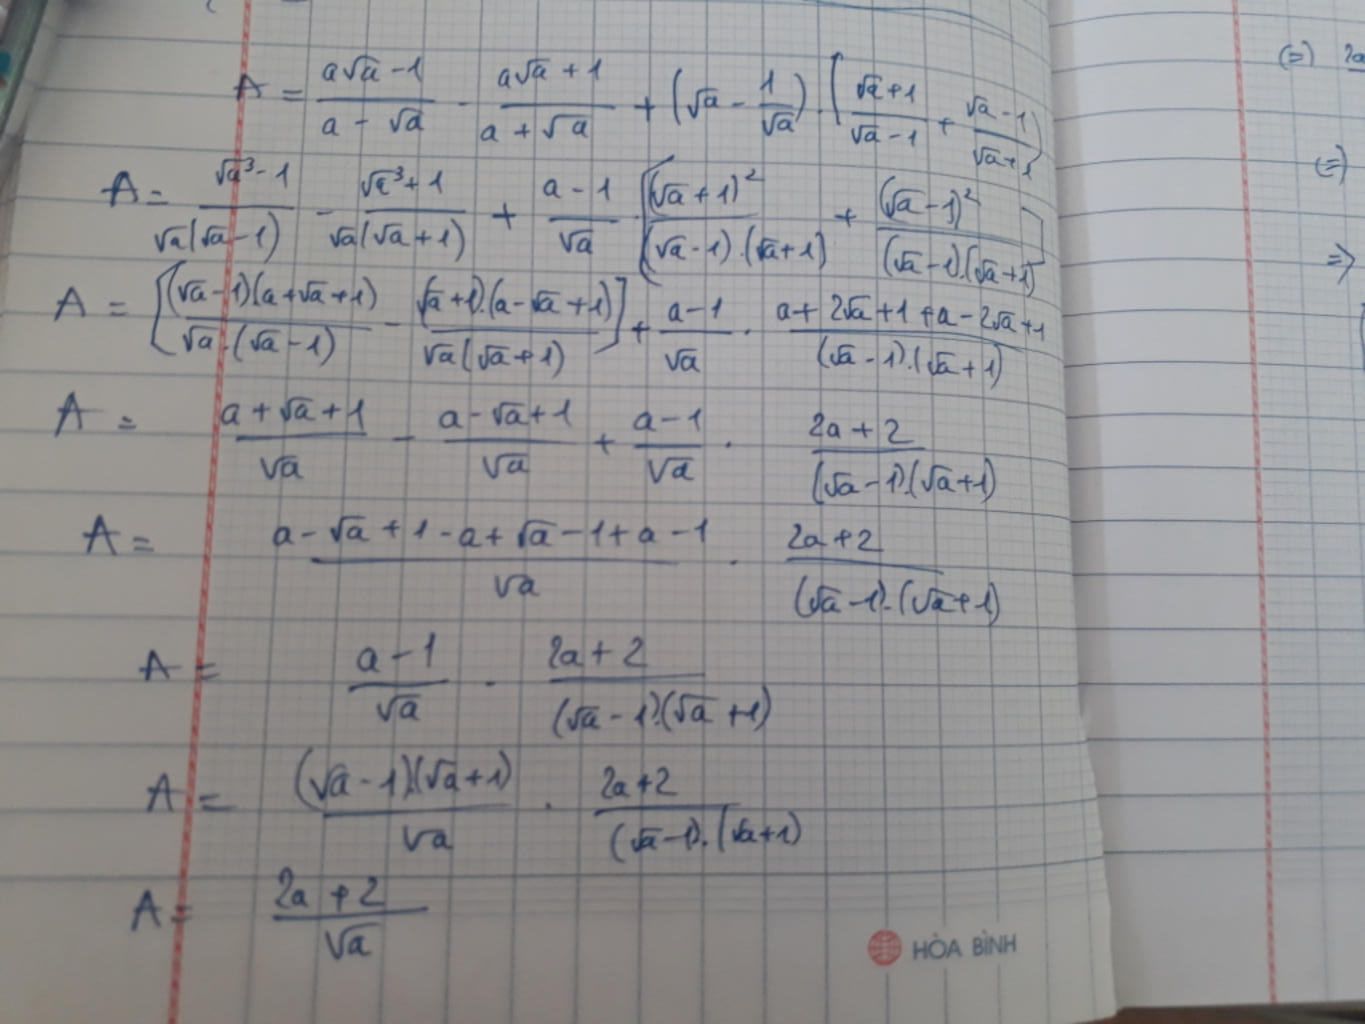 A = (a√a − 1)/(a − √a) − (a√a + 1)/(a + √a) + (√a − 1/√a) . [(√a + 1)/(√a − 1) + (√a − 1)/(√a + 1)]
A = (√a³ − 1)/(√a(√a − 1)) − (√a³ + 1)/(√a(√a + 1)) + (a − 1)/√a . [(√a + 1)²/((√a − 1).(√a + 1)) + (√a − 1)²/((√a − 1).(√a + 1))]
A = [(√a − 1)(a + √a + 1)/(√a.(√a − 1)) − (√a + 1).(a − √a + 1)/(√a(√a + 1))] + (a − 1)/√a . (a + 2√a + 1 + a − 2√a + 1)/((√a − 1).(√a + 1))
A = (a + √a + 1)/√a − (a − √a + 1)/√a + (a − 1)/√a . (2a + 2)/((√a − 1).(√a + 1))
A = (a − √a + 1 − a + √a − 1 + a − 1)/√a . (2a + 2)/((√a − 1).(√a + 1))
A = (a − 1)/√a . (2a + 2)/((√a − 1).(√a + 1))
A = (√a − 1)(√a + 1)/√a . (2a + 2)/((√a − 1).(√a + 1))
A = (2a + 2)/√a
HÒA BÌNH
(=) 2a
(=)
=>